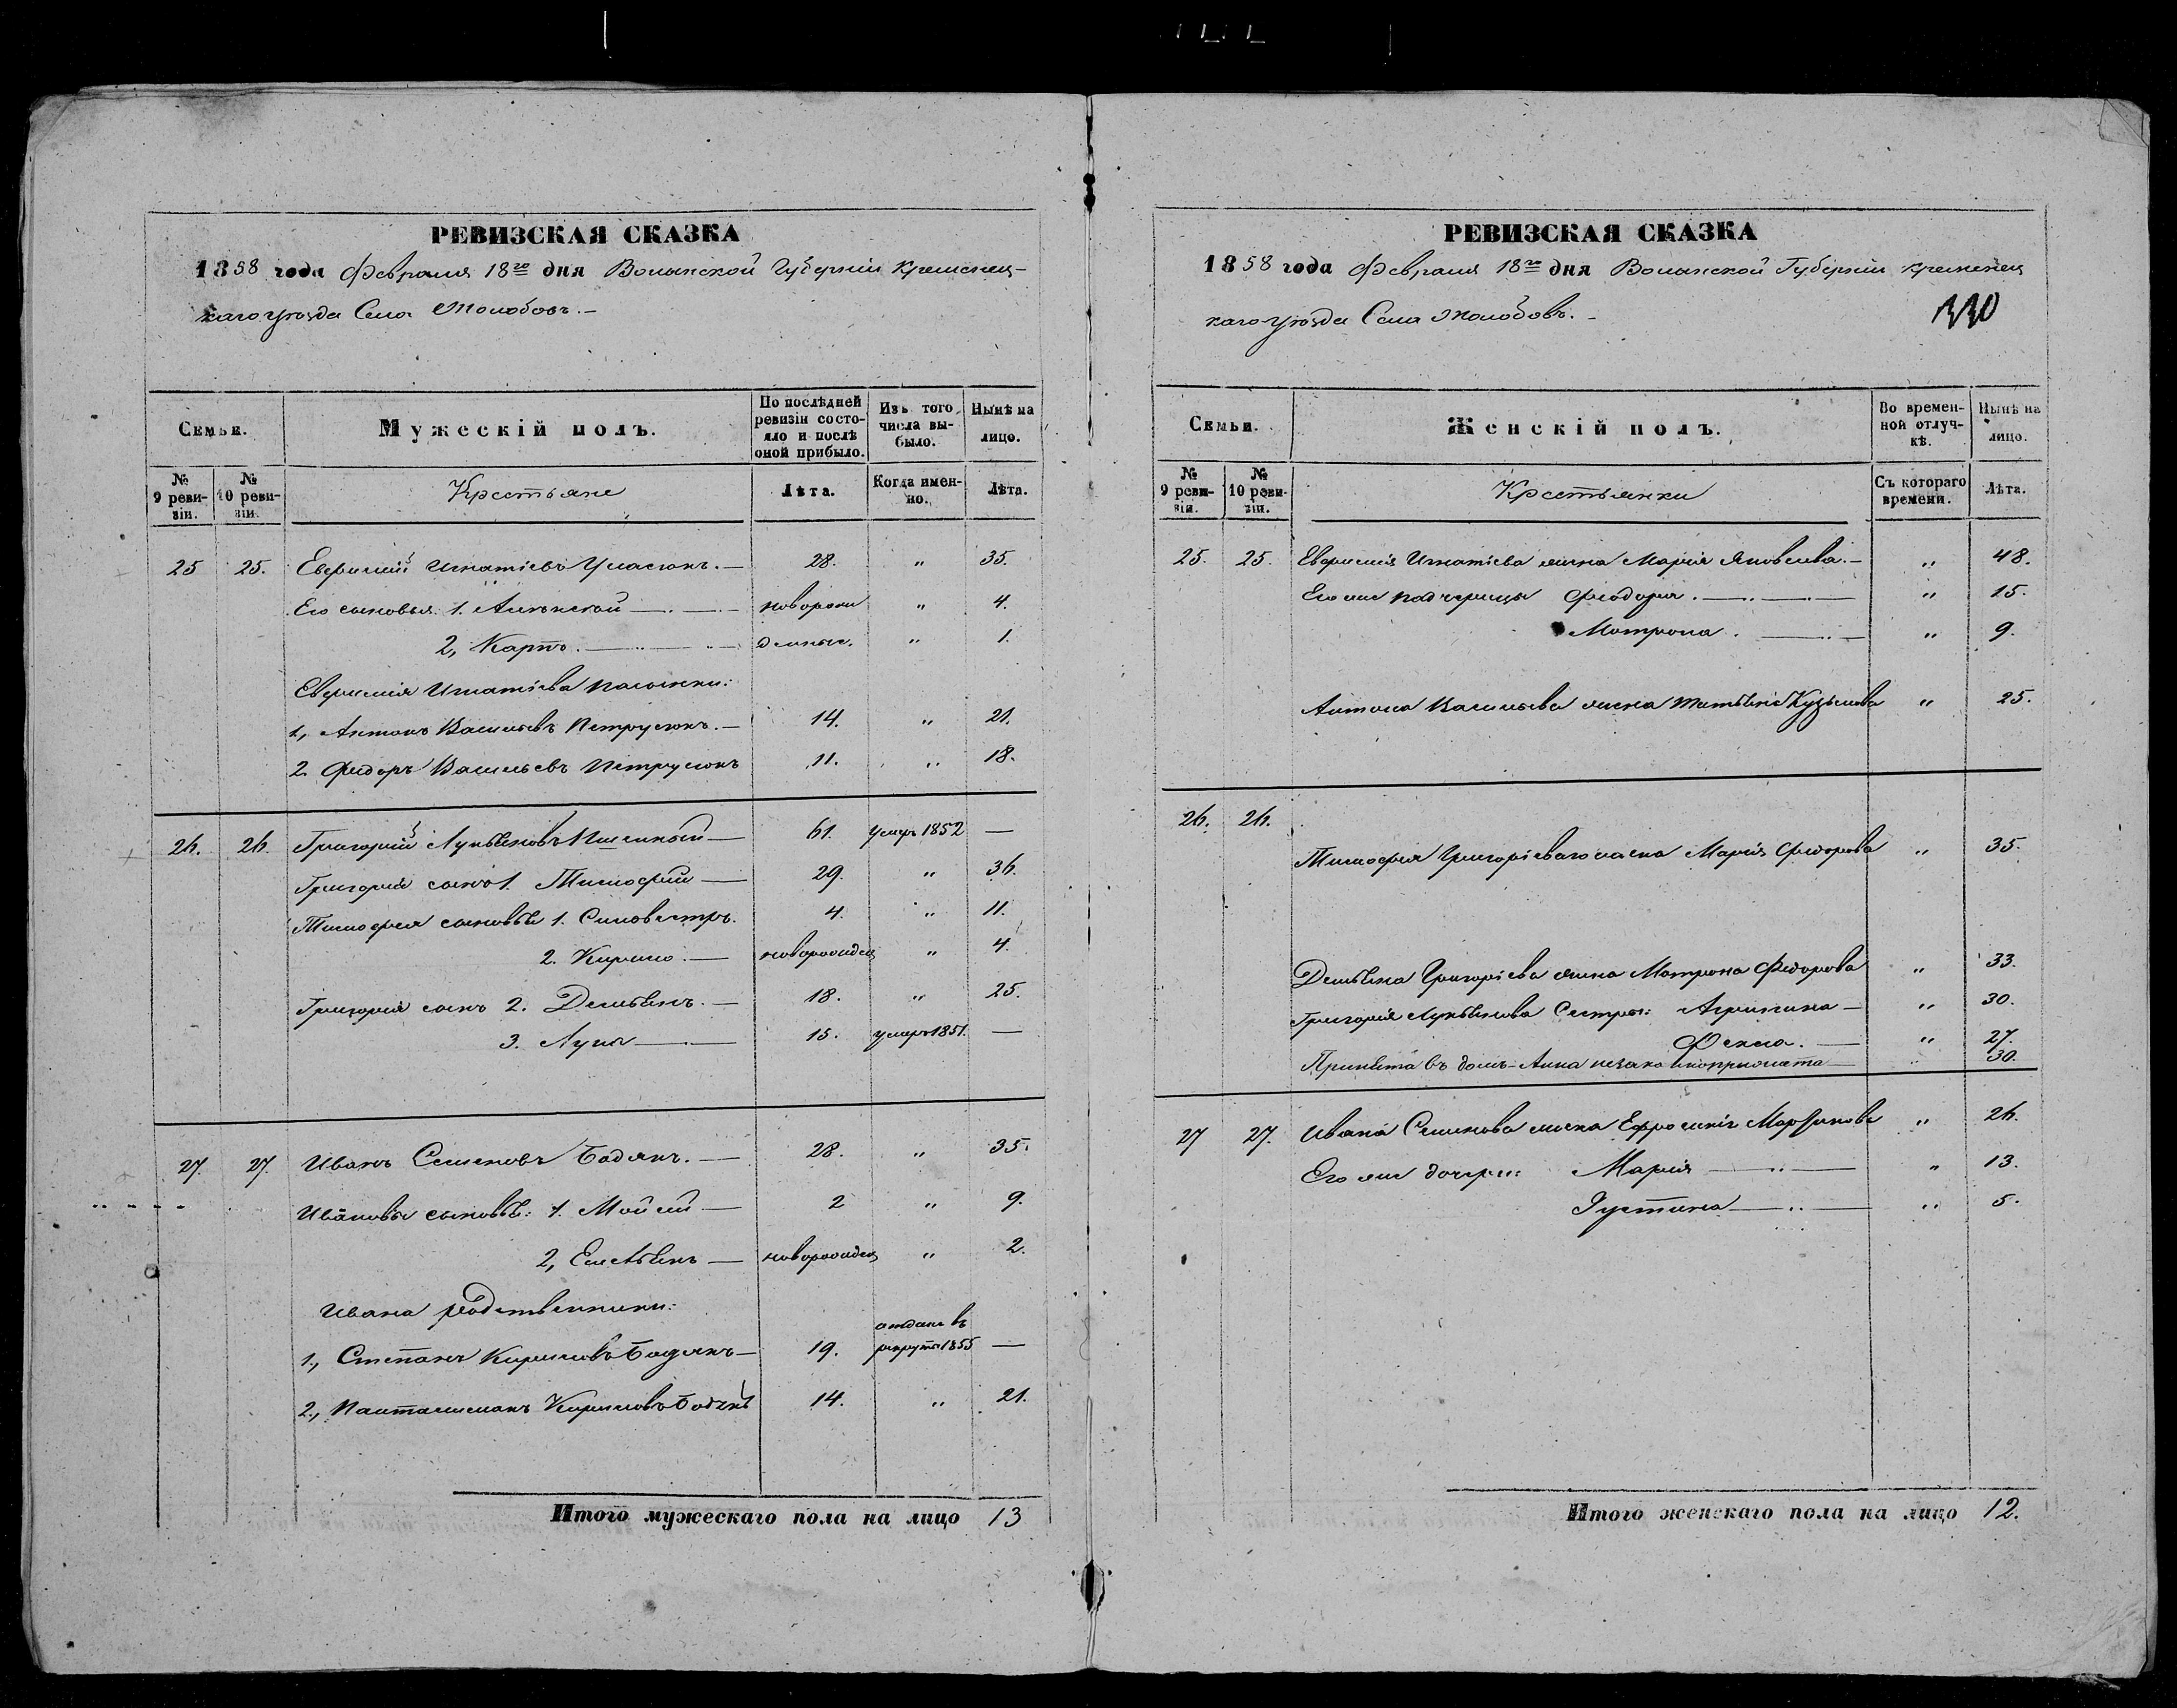 РЕВИЗСКАЯ СКАЗКА
1858 года Февраля 18го дня Волынской Губерніи Кременец-
каго уѣзда Села Жолобовъ.-
Семьи.
Мужескій полъ.
По послѣдней ревизіи состо-яло и послѣ оной прибыло.
Изъ того числа вы-было.
Нынѣ на лицо.
№ 9 реви-зіи.
№ 10 реви-зіи.
Крестьяне
Лѣта.
Когда имен-но.
Лѣта.
25 25. Евфимій Игнатіевъ 28. " 35.
Его сыновья 1. Алексѣй новорож " 4.
2, Карпъ. денные. " 1.
Евфимія Игнатіева пасынки:
1, Антонъ Васильевъ Петрусюкъ.- 14. " 21.
2. Федоръ Васильевъ Петрусюкъ 11. " 18.
26. 26. Григорій Лукьяновъ 61. умеръ 1852 —
Григорія сынъ 1. Тимофей — 29. " 36.
Тимофея сыновья 1. Сильвестръ. 4. " 11.
2. Кирило. — новорожден " 4.
Григорія сынъ 2. Демьянъ. — 18. " 25.
3. Лука — 15. умеръ 1851. —
27. 27. Иванъ Семеновъ Бодякъ. — 28. " 35.
Ивановы сыновья: 1. Мойсей — 2 " 9.
2, Емельянъ — новорожден " 2.
Ивана родственники:
отданъ въ
1., Степанъ Кириловъ Бодякъ — 19. рекруты 1855 —
2., Пантелимонъ Кириловъ Бодякъ 14. " 21.
Итого мужескаго пола на лицо 13
РЕВИЗСКАЯ СКАЗКА
1858 года Февраля 18го дня Волынской Губерніи Кременец
каго уѣзда Села Жолобовъ.-
Семьи.
Женскій полъ.
Во времен-ной отлуч-кѣ.
Нынѣ на лицо.
№ 9 реви-зіи.
№ 10 реви-зіи.
Крестьянки
Съ котораго времени.
Лѣта.
25. 25. Евфимія Игнатіева жена Марія Яковлева.- " 48.
Его же падчерицы Феодора. " 15.
Мотрона. " 9.
Антона Васильева жена Татьяна Кузьмова " 25.
26. 26.
Тимофея Григоріеваго жена Марія Федорова " 35.
Демьяна Григоріева жена Мотрона Федорова " 33.
Григорія Лукьянова Сестры: Агрипина — " 30.
Фекла. — " 27.
Принята въ домъ - Анна незаконноприжита 30.
27 27. Ивана Семенова жена Ефросинія " 26.
Его же дочери: Марія " 13.
Густина " 5.
Итого женскаго пола на лицо 12.